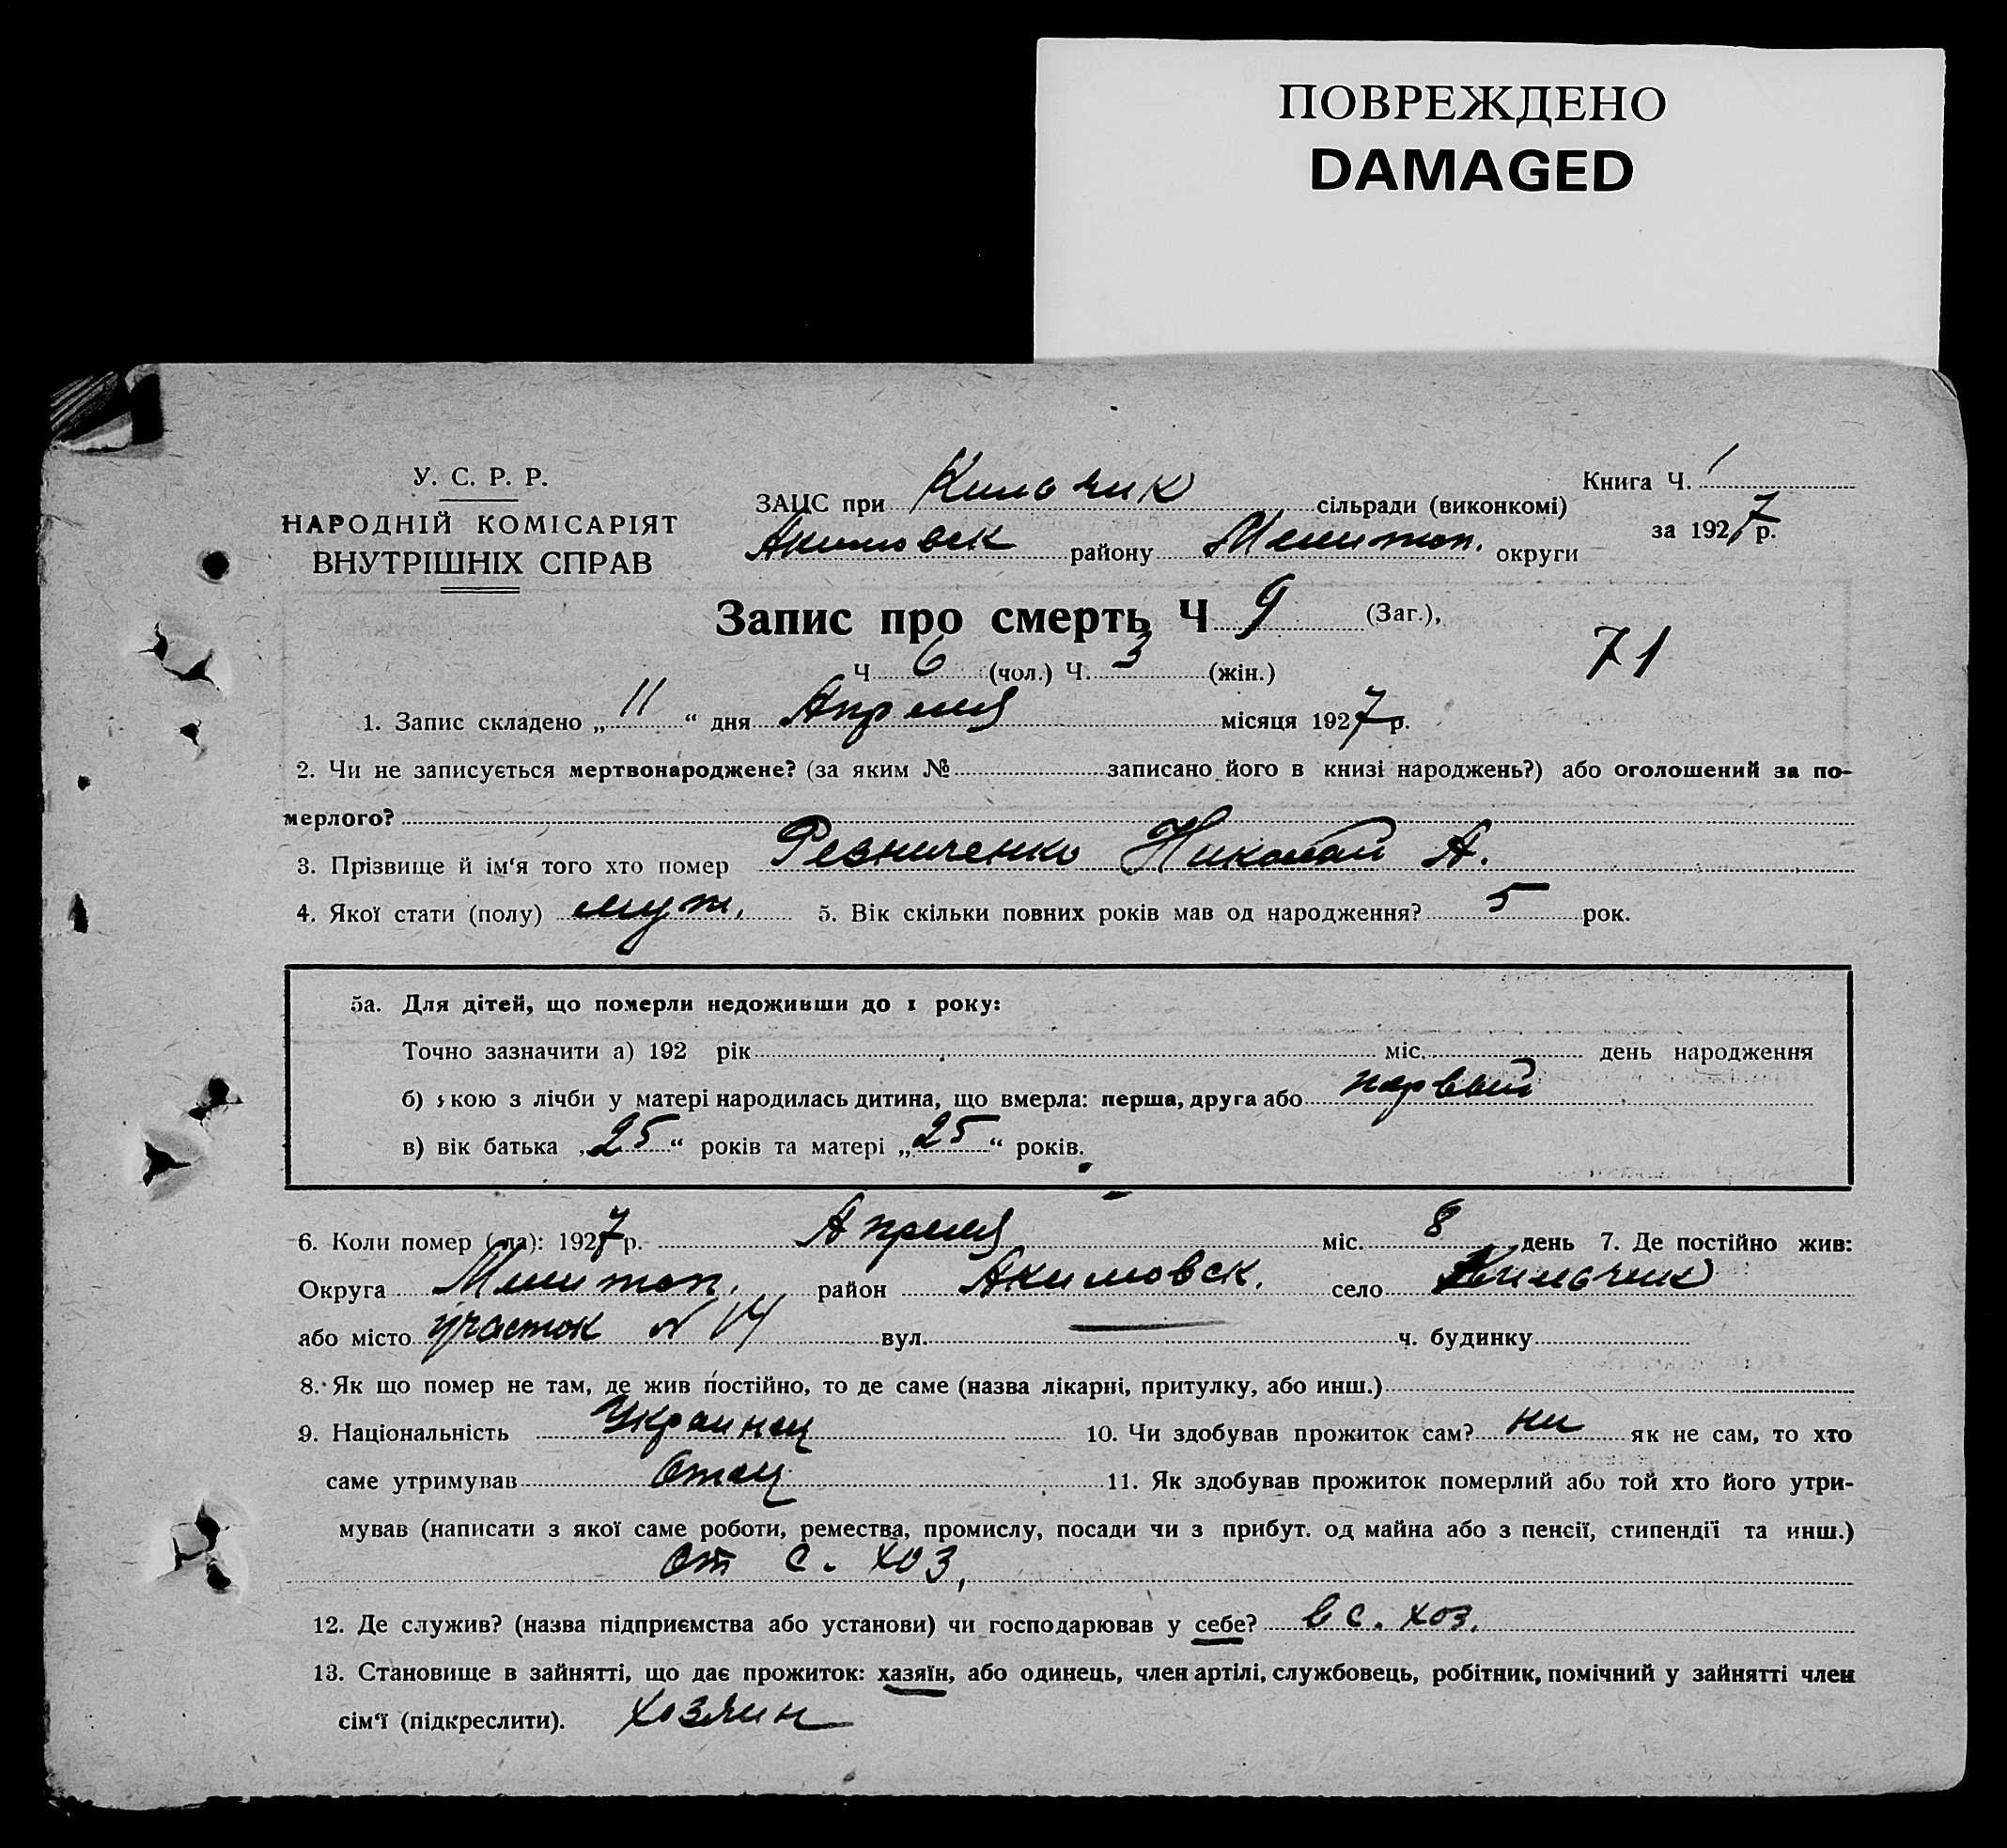 ПОВРЕЖДЕНО
DAMAGED
У. С. Р. Р.
НАРОДНІЙ КОМІСАРІЯТ
ВНУТРІШНІХ СПРАВ
ЗАЦС при Кильчик сільради (виконкомі)
Акимовск району Мелитоп. округи
Книга Ч. 1
за 1927 р.
Запис про смерть Ч 9 (Заг.),
71
Ч 6 (чол.) Ч. 3 (жін.)
1. Запис складено „ 11 “ дня Апреля місяця 1927 р.
2. Чи не записується мертвонароджене? (за яким № записано його в книзі народжень?) або оголошений за по-
мерлого?
3. Прізвище й ім‘я того хто помер Резниченко Николай А.
4. Якої стати (полу) муж. 5. Вік скільки повних років мав од народження? 5 рок.
5а. Для дітей, що померли недоживши до 1 року:
Точно зазначити а) 192 рік міс. день народження
б) якою з лічби у матері народилась дитина, що вмерла: перша, друга або первый
в) вік батька „ 25 “ років та матері „ 25 “ років.
6. Коли помер (ла): 1927 р. Апреля міс. 8 день 7. Де постійно жив:
Округа Мелитоп. район Акимовск. село Кильчик
або місто участок N 14 вул. — ч. будинку
8. Як що помер не там, де жив постійно, то де саме (назва лікарні, притулку, або инш.)
9. Національність Украинец 10. Чи здобував прожиток сам? ни як не сам, то хто
саме утримував Отец 11. Як здобував прожиток померлий або той хто його утри-
мував (написати з якої саме роботи, ремества, промислу, посади чи з прибут. од майна або з пенсії, стипендії та инш.)
от с. хоз.
12. Де служив? (назва підприємства або установи) чи господарював у себе? в с. хоз.
13. Становище в зайнятті, що дає прожиток: хазяїн, або одинець, член артілі, службовець, робітник, помічний у зайнятті член
сім‘ї (підкреслити). хозяин